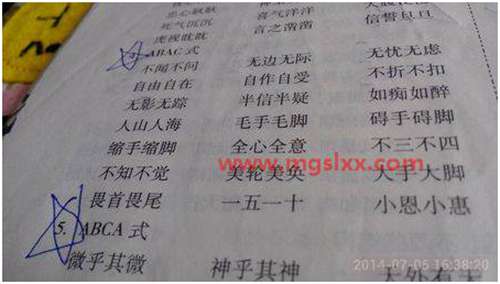 忠心耿耿 喜气洋洋
死气沉沉 言之凿凿 信誓旦旦
虎视眈眈
ABAC 式
不闻不问 无边无际 无忧无虑
自由自在 自作自受 不折不扣
无影无踪 半信半疑 如痴如醉
人山人海 毛手毛脚 碍手碍脚
缩手缩脚 全心全意 不三不四
www.mgslxx.com
不知不觉 美轮美奂 大手大脚
畏首畏尾 一五一十 小恩小惠
5. ABCA 式
微乎其微 神乎其神 天外有天
2014-07-05 16:38:20